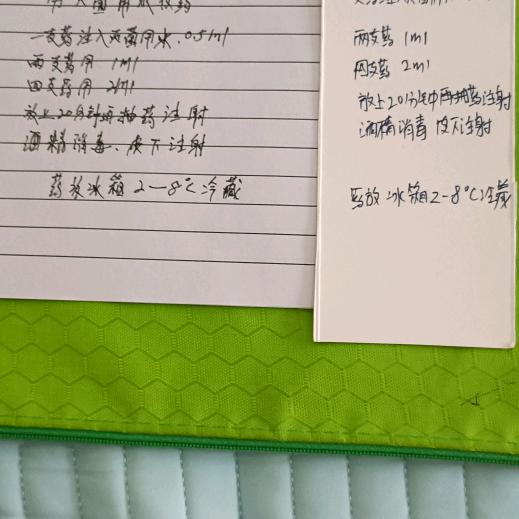 一支药注入灭菌用水.0.5ml
两支药用 1ml
四支药用 2ml
放上20分钟再抽药注射
酒精消毒、皮下注射
药放冰箱2—8°C冷藏
两支药 1ml
四支药 2ml
放上20分钟再抽药注射
酒精消毒 皮下注射
药放冰箱2-8°C冷藏